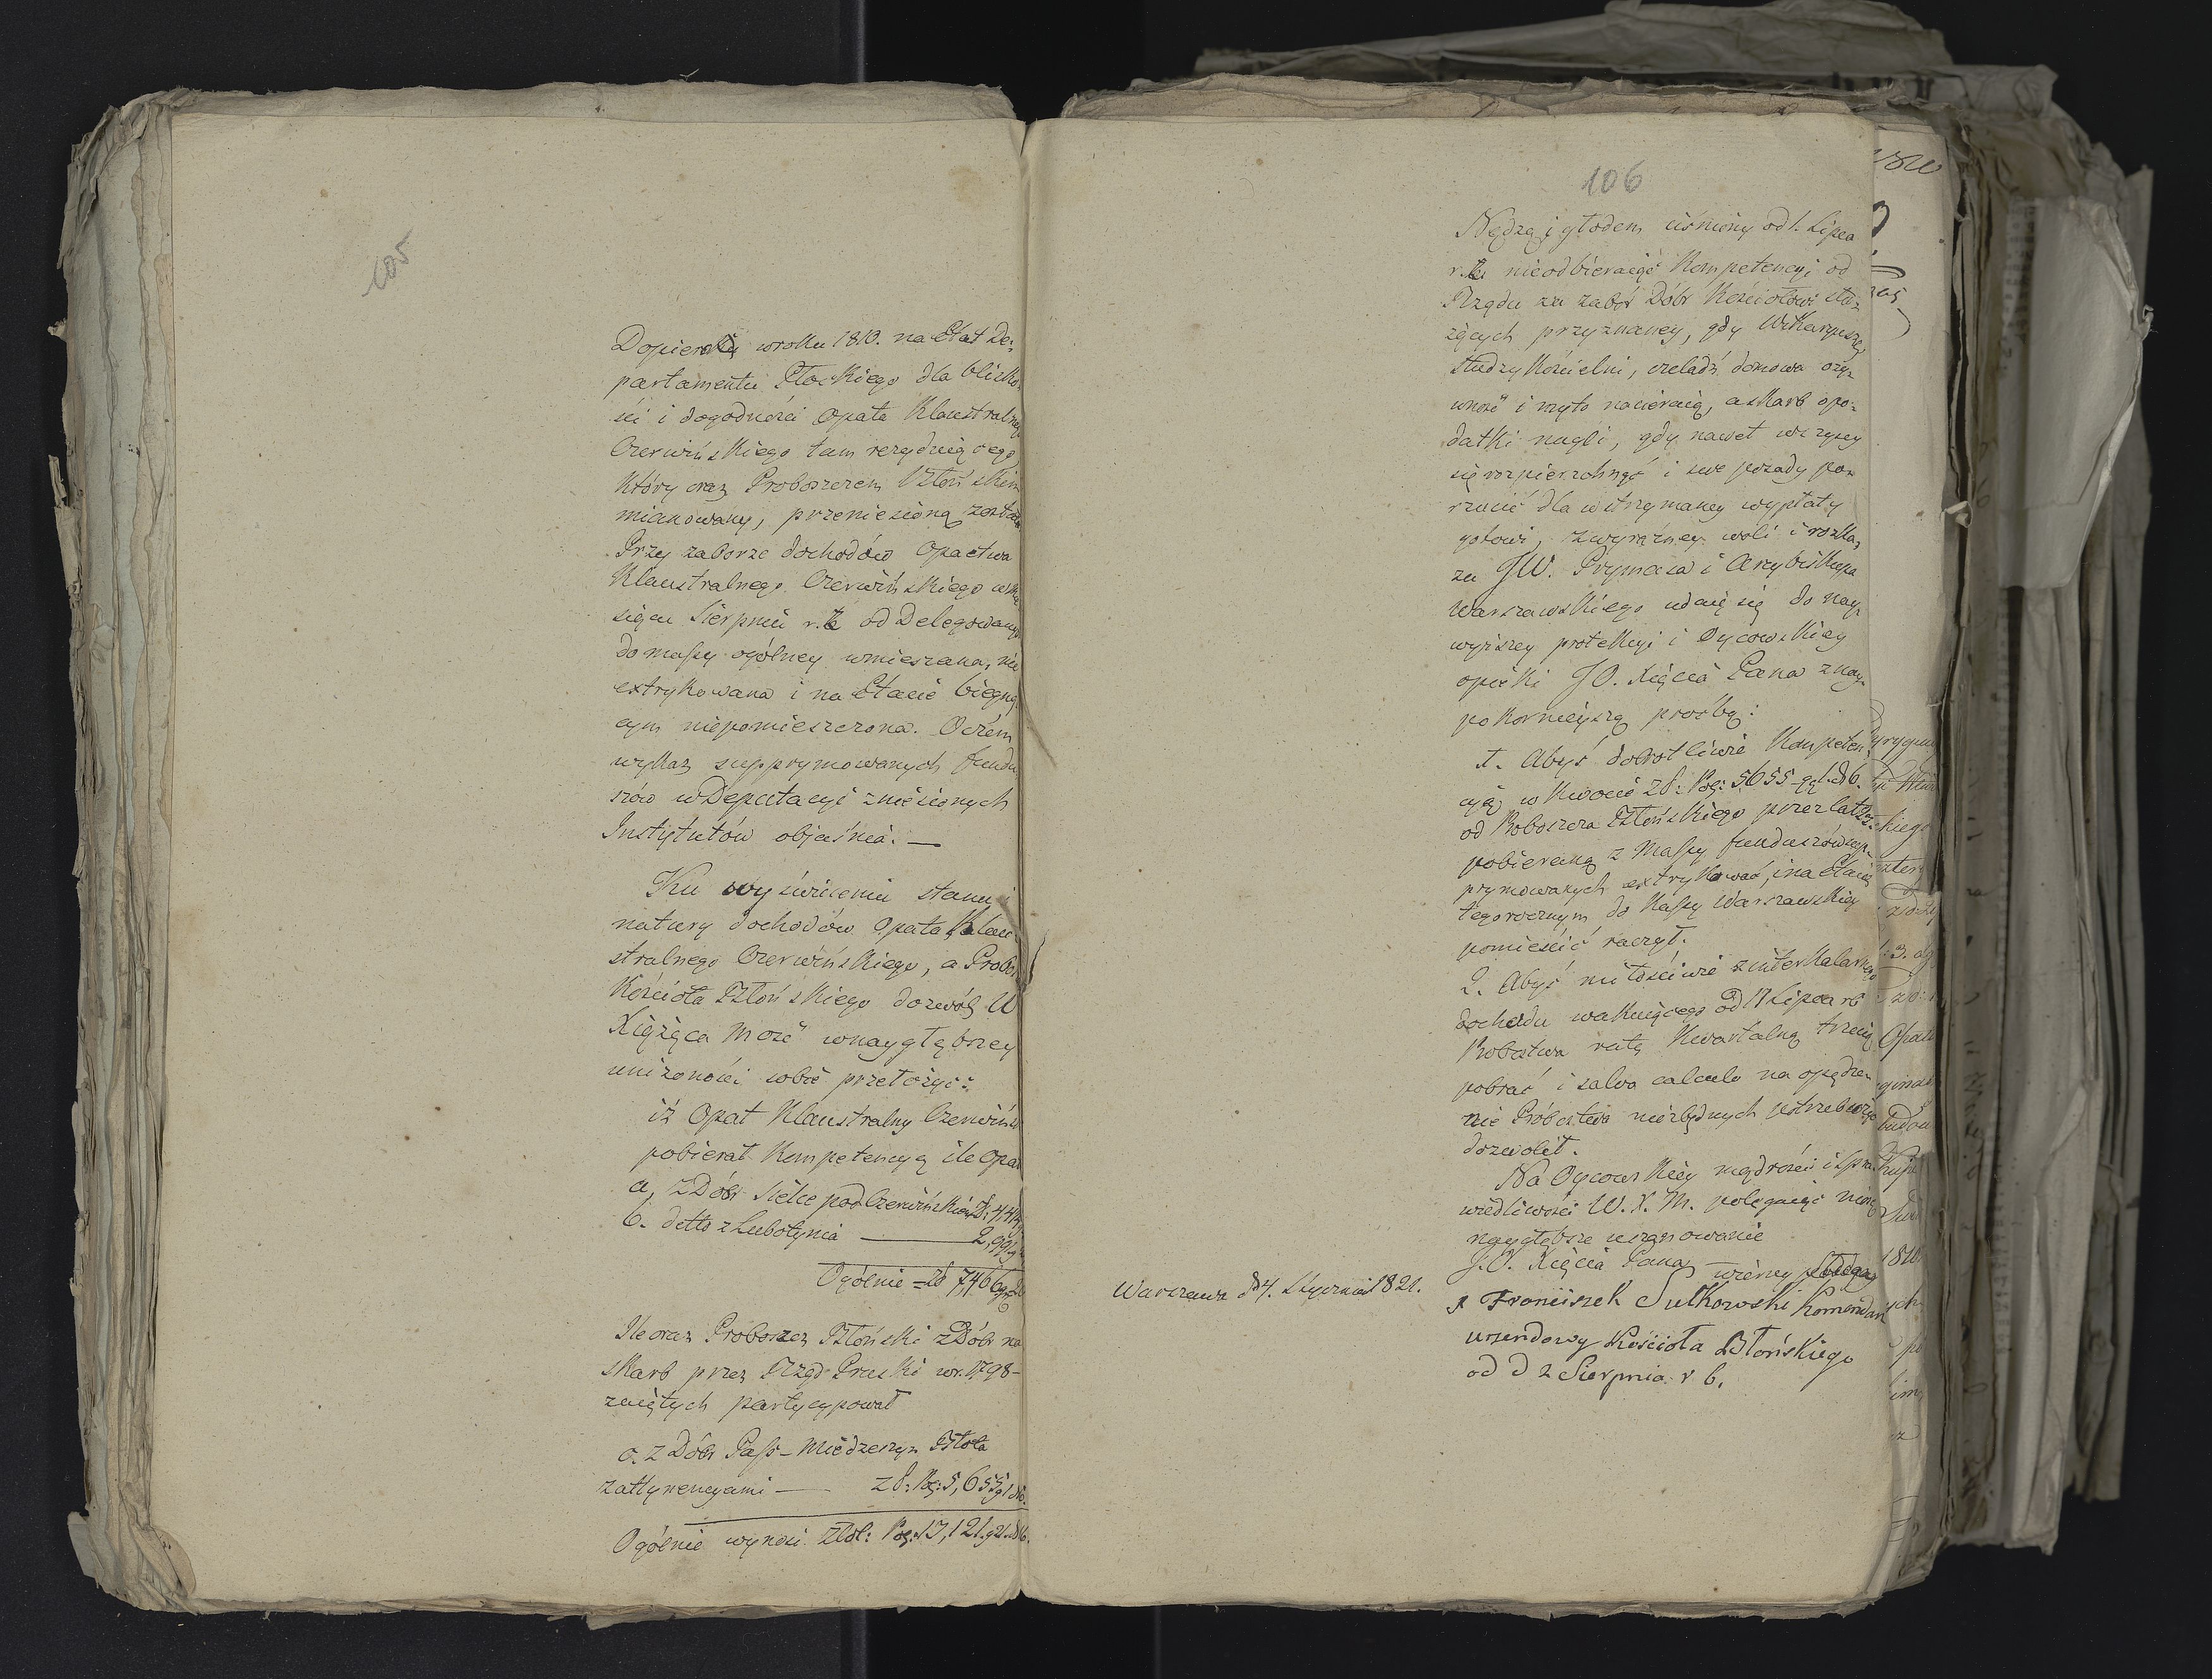 105
Dopiero w roku 1810. na Etat De:
partamentu Płockiego dla blizko:
ści i dogodności Opata Klaustralnego
Czerwińskiego tam rezyduiącego
który oraz Proboszczem Błońskim
mianowany, przeniesioną została
Przy zaborze dochodów Opactwa
Klaustralnego Czerwińskiego w mie
siącu Sierpniu r. b. od Delegowanych
do massy ogólney wmieszana, nie
extrykowana i na Etacie biegną
cym niepomieszczona. O czem
wykaz supprymowanych fundu
szów w Deputacyi zniesionych
Instytutów objaśnia. —
Ku wyświeceniu stanu i
natury dochodów Opata Klau
stralnego Czerwińskiego, a Probos
Kościoła Błońskiego dozwól W
Xiążęca Mość w naygłębszey
uniżoności sobie przełożyć:
iż Opat Klaustralny Czerwińs
pobierał Kompetencyą ile Opat
a, z Dóbr Sielce pod Czerwińskiem
b. detto z Lubotynia —— 2,991
Ogólnie = zł 7,466
Ile oraz Proboszcz Błoński z Dóbr na
skarb przez Rząd Pruski w r. 1798 -
zaiętych partycypował
c. z Dóbr Pass - Miedzeszyn Błota
z attynencyami —— zł: Pol: 5,655 g 1 d 6.
Ogólnie wynosi Złol: Pol: 13,121. g 21. d 6.
106
Nędzą i głodem ciśniony od 1. Lipca
r. b. nieodbieraiąc Kompetencyi od
Rządu za zabór Dóbr Kościołowi słu:
żących przyznaney, gdy Wikaryusze,
słudzy kościelni, czeladź domowa ży:
wność i myto nacieraią, a skarb o po:
datki nagli, gdy nawet wszyscy
się rozpierzchnąć i swe posady po:
rzucić dla wstrzymaney wypłaty
gotowi, z wyraźney woli i rozka:
zu JW. Prymasa i Arcybiskupa
Warszawskiego udaię się do nay:
wyższey protekcyi i Oycowskiey
opieki JO. Xięcia Pana z nay:
pokornieyszą prośbą:
1. Abyś dobrotliwie Kompeten:
cyą w kwocie zł: Pol: 5655 g 1. d 6.
od Proboszcza Błońskiego przez lat 22.
pobieraną z Massy funduszów sup:
prymowanych extrykować, i na Etacie
tegorocznym do Kassy Warszawskiey
pomieścić raczył.
2. Abyś miłościwie z interkalarnego
dochodu wakuiącego od 17 Lipca rb
Probostwa ratę kwartalną trzecią
pobrać i salvo calculo na opędze:
nie Probostwa niezbędnych potrzeb
dozwolił.
Na Oycowskiey mądrości i spra:
wiedliwości W. X. M. polegaiąc niosę
naygłębsze uszanowanie
J. O. Xięcia Pana wierny sługa
Warszawa d 4. Stycznia 1821.
X Franciszek Sulkowski Komendarz
urzendowy Kościoła Błońskiego
od d 2 Sierpnia r b.